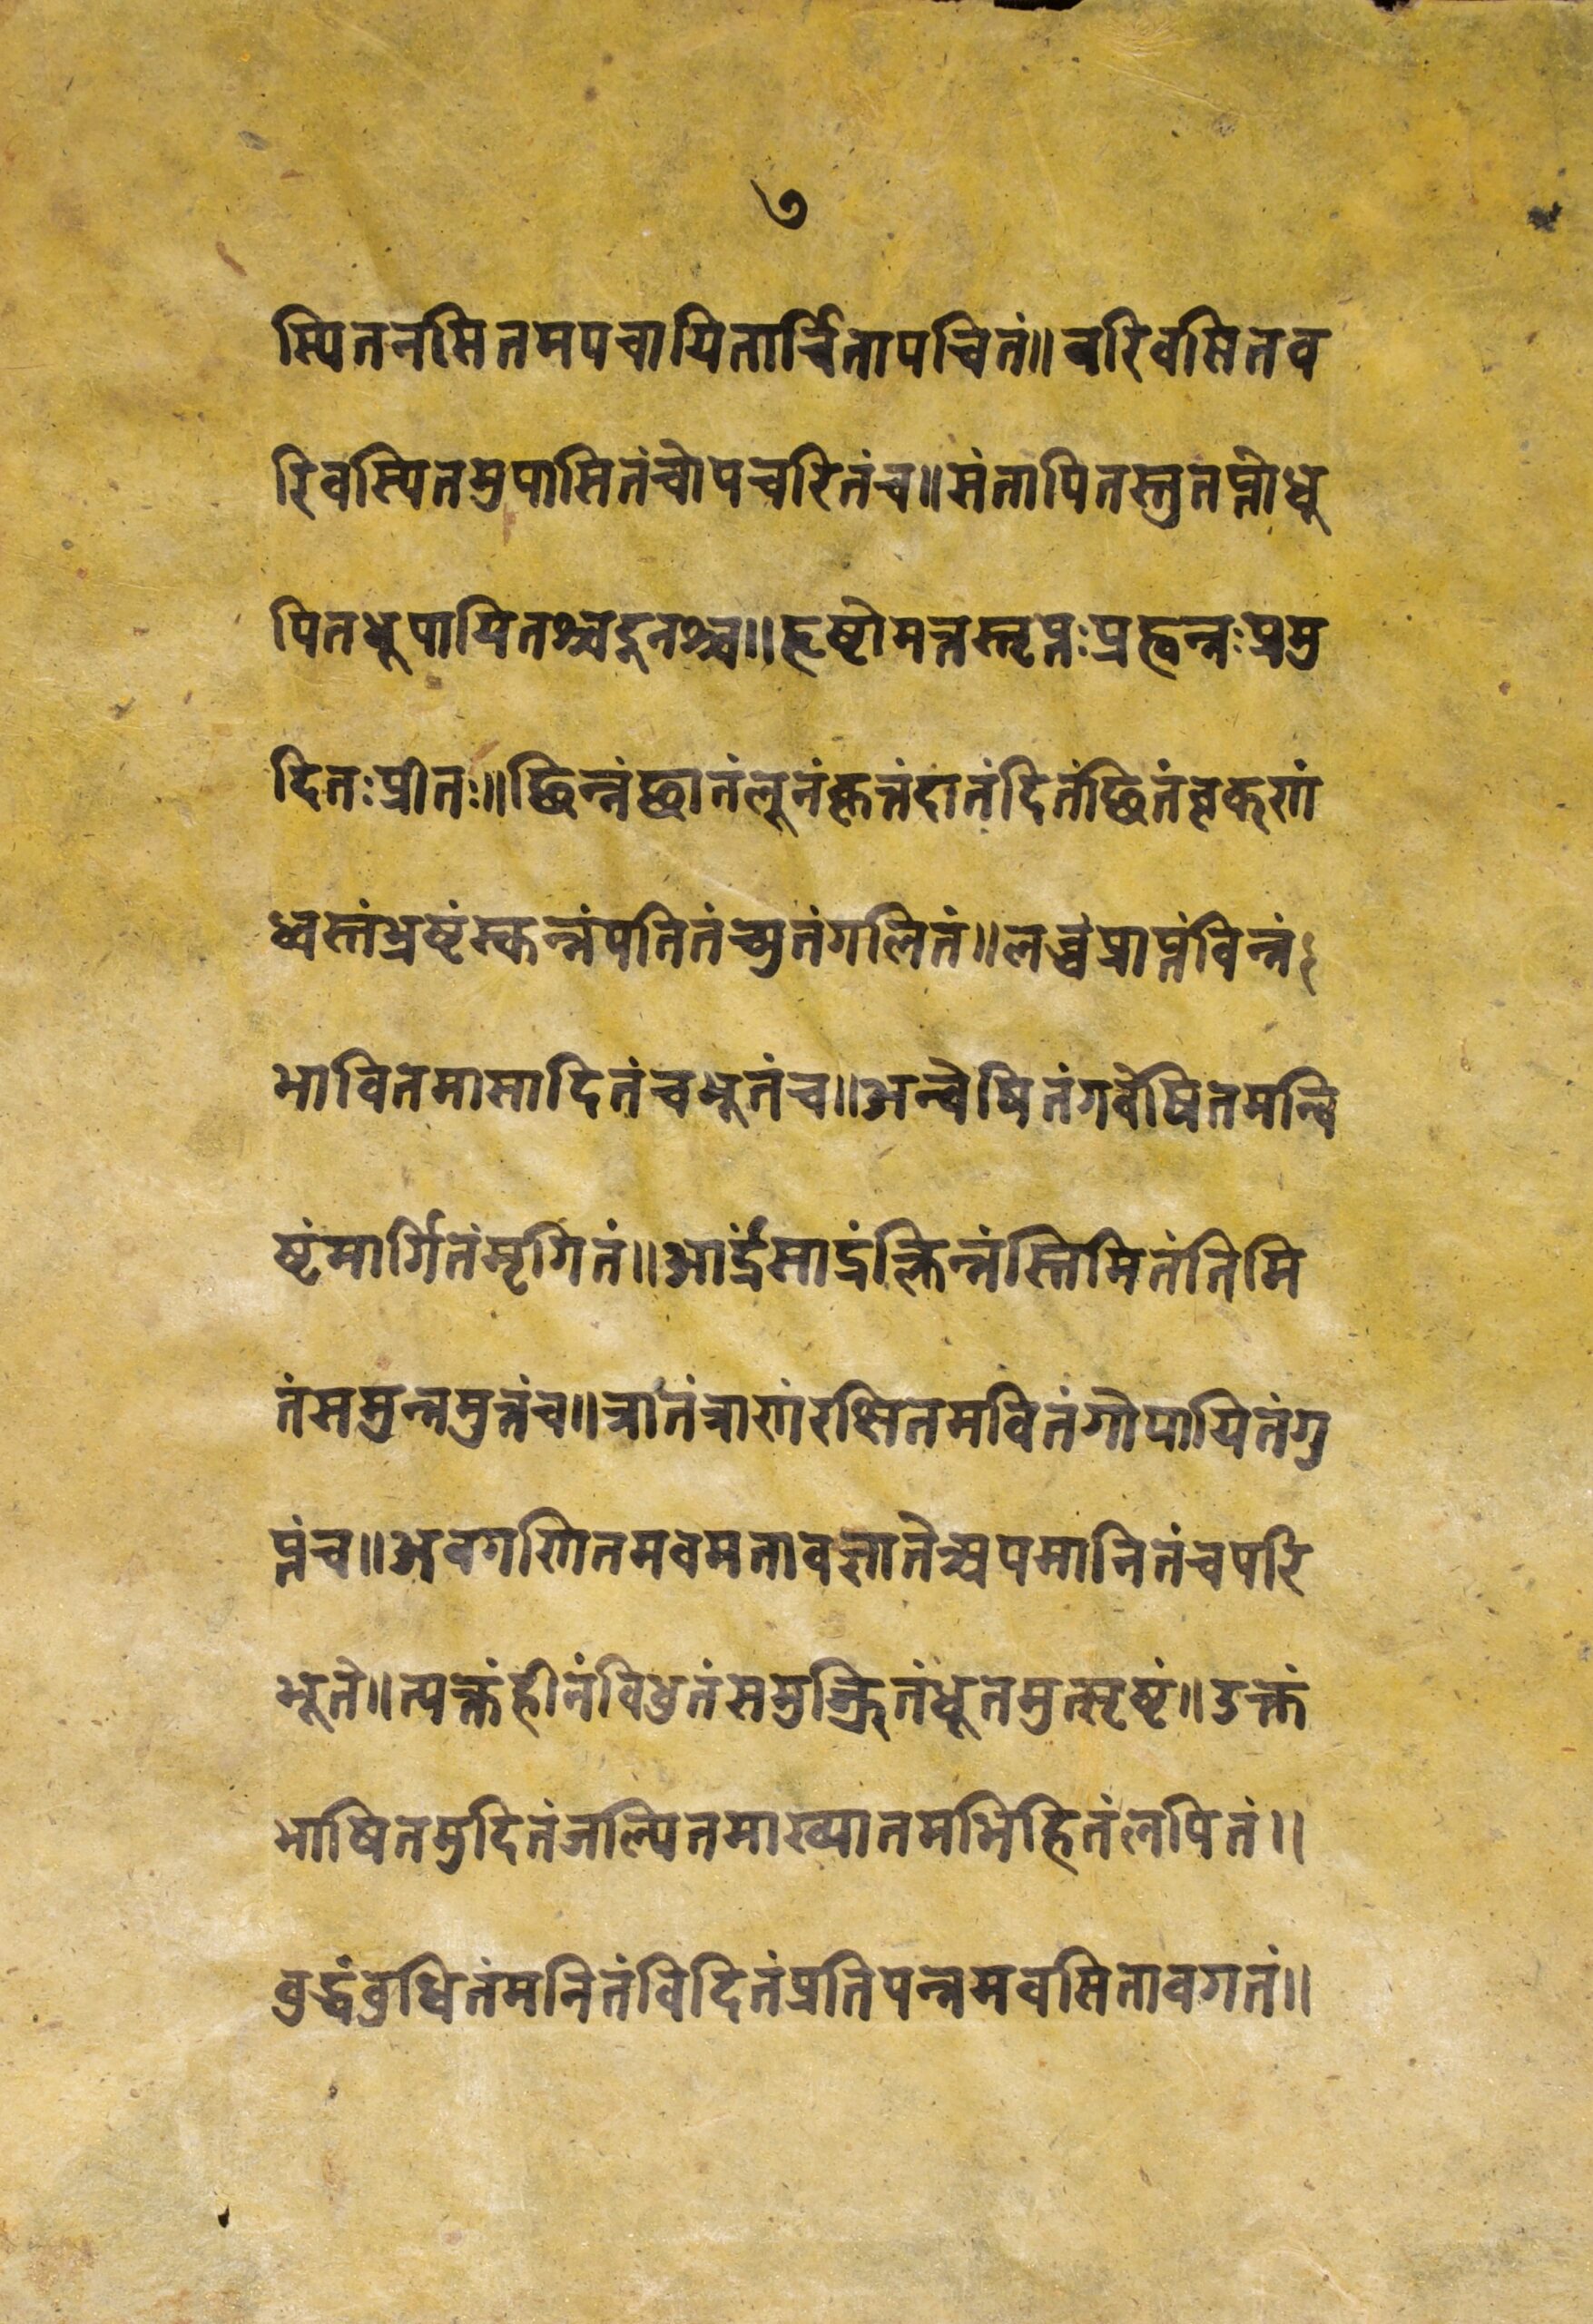 ७
स्यितनसितमपचायितार्चितापचितं॥वरिवसितव
रिवस्यितमुपासितंचोपचरितंच॥संतापितस्तुतप्तोधू
पितधूपायितश्चदूनश्च॥हृष्टोमत्तस्तृप्तःप्रह्लन्नःप्रमु
दितःप्रीतः॥छिन्नंछातंलूनंकृत्तंदातंदितंछितंवृक्णं
ध्वस्तंभ्रष्टंस्कन्नंपतितंच्युतंगलितं॥लब्धंप्राप्तंविन्नं
भावितमासादितंचभूतंच॥अन्वेषितंगवेषितमन्वि
ष्टंमार्गितंमृगितं॥आर्द्रंसार्द्रंक्लिन्नंस्तिमितंतिमि
तंसमुन्नमुत्तंच॥त्रातंत्राणंरक्षितमवितंगोपायितंगु
प्तंच॥अवगणितमवमतावज्ञातेअपमानितंचपरि
भूते॥त्यक्तंहीनंविधुतंसमुज्झितंधूतमुत्सृष्टं॥उक्तं
भाषितमुदितंजल्पितमाख्यातमभिहितंलपितं॥
बुद्धंबुधितंमनितंविदितंप्रतिपन्नमवसितावगतं॥